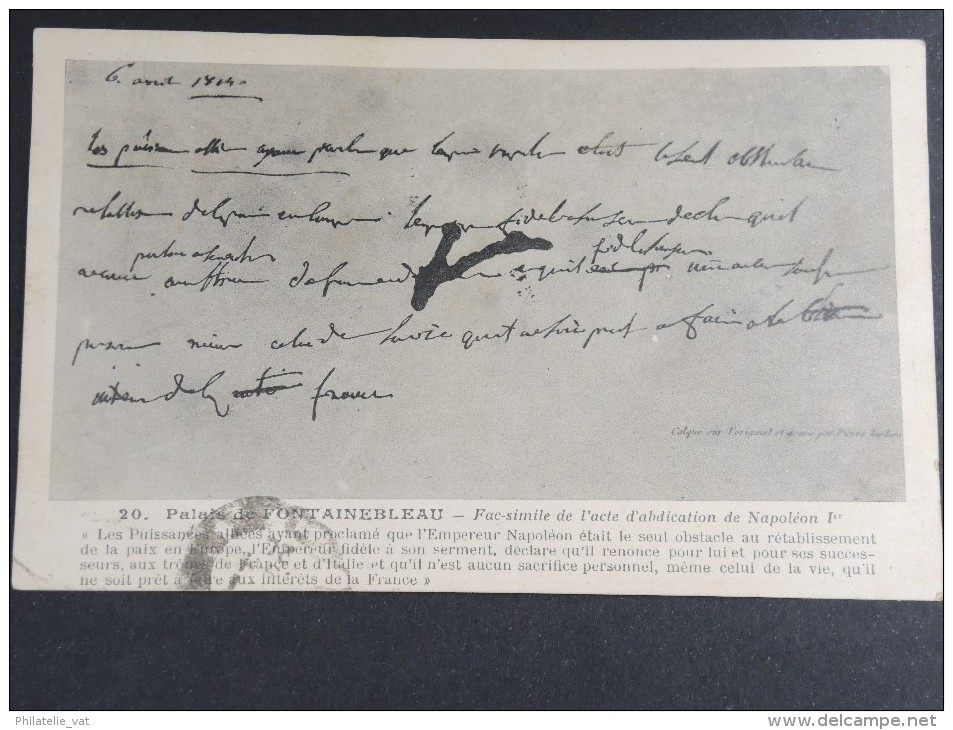 6. avril 1814
Les puissances alliées ayant proclamé que l'empereur Napoléon était le seul obstacle au
de la paix en Europe l'empereur fidèle à son serment déclare qu'il
fidèle
personnel même celui de la vie qu'il ne soit prêt à faire
de la France
Calqué sur l'original et gravé par Pierre
20. Palais de FONTAINEBLEAU — Fac-simile de l'acte d'abdication de Napoléon Ier
« Les Puissances alliées ayant proclamé que l'Empereur Napoléon était le seul obstacle au rétablissement
de la paix en Europe, l'Empereur fidèle à son serment, déclare qu'il renonce pour lui et pour ses succes-
seurs, aux trônes de France et d'Italie et qu'il n'est aucun sacrifice personnel, même celui de la vie, qu'il
ne soit prêt à faire aux intérêts de la France »
Philatelie_vat
delcampe.net